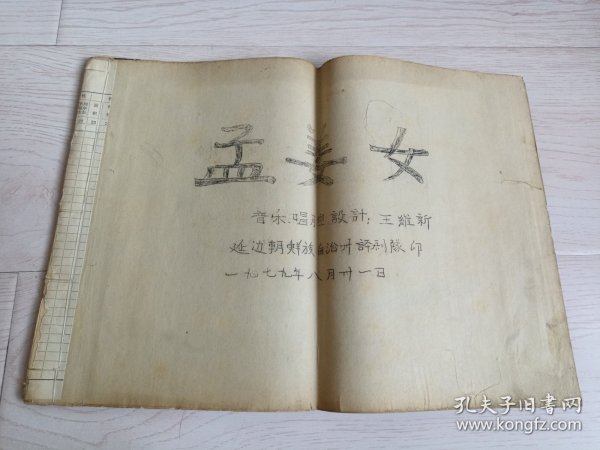 孟姜女
音乐、唱腔設計：王維新
延边朝鲜族自治州評剧隊印
一九七九年八月廿一日
孔夫子旧書网
www.kongfz.com